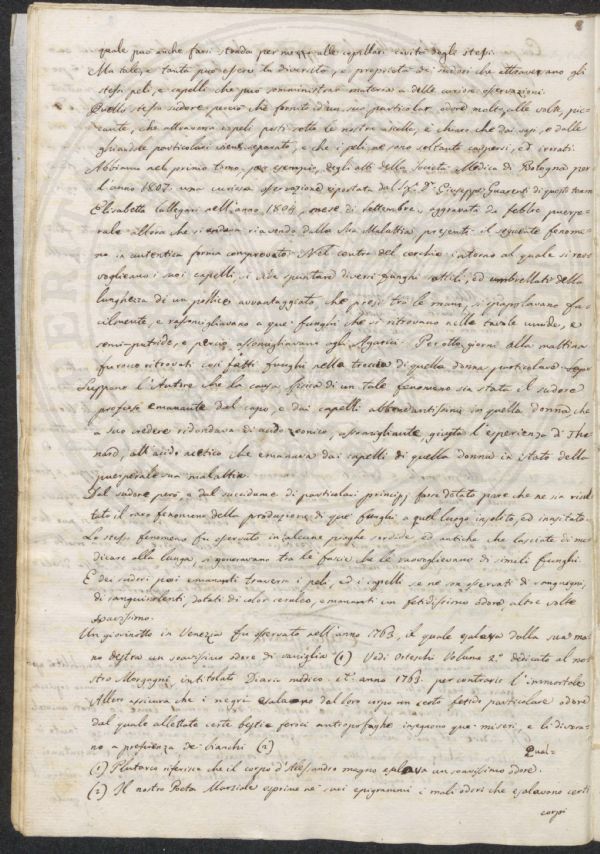 quale può anche farsi strada per mezzo alle capillari cavità degli stessi.
Ma tale, e tanta può essere la diversità, e proprietà de' sudori che attraversano gli
stessi peli, e capelli che può somministrar materia a delle curiose osservazioni.
Quello stesso sudore perciò che fornito d'un suo particolar odore molto, alle volte, pic-
cante, che attraversa i peli posti sotto le nostre ascelle, è chiaro che dai , o dalle
ghiandole particolari viene separato, e che i peli ne sono soltanto cospersi, ed irrorati.
Abbiamo nel primo tomo, per esempio, degli atti della Società Medica di Bologna per
l'anno 1807. una curiosa osservazione riportata dal Sig.r D.r Giuseppe Guarenti di questo tenore
Elisabetta Callegari nell'anno 1804, mese di settembre, aggravata da febbre puerpe-
rale allora che si andava riavendo dalla sua Malattia presentò il seguente fenome-
no in autentica forma comprovato. Nel centro del cerchio intorno al quale si rav-
voglieano i suoi capelli, si spuntare diversi funghi sottili, ed umbrellati della
lunghezza di un pollice avvantaggiato, che presi tra le mani, si spapolavano fa-
cilmente, e rassomigliavano a que' funghi che si ritrovano nelle tavole umide, e
semi-putride, e perciò assomigliavano agli Agarici. Per otto giorni alla mattina
furono ritrovati così fatti funghi nella treccia di quella donna particolare.
Suppone l'Autore che la causa fisica di un tale fenomeno sia stata il sudore
profuso emanante dal capo, e dai capelli abbondantissimi in quella donna che
a suo credere ridondava di acido zoonico, assomigliante, giusta l'esperienza di The
nard, all'acido acetico che emanava dai capelli di quella donna in istato della
puerperale sua malattia.
Dal sudore però, o dal sucidume di particolari principj forse dotato pare che ne sia risul
tato il raro fenomeno della produzione di que' funghi a quel luogo insolito, ed inusitato.
Lo stesso fenomeno fu osservato in alcune piaghe sordide ed antiche che lasciate di me-
dicare alla lunga, si generavano tra le fascie che le ravvoglievano di simili funghi.
E dei sudori poi emananti traverso i peli, ed i capelli se ne son osservati di sanguigni,
di sanguinolenti, dotati di color ceruleo, emananti un fetidissimo odore altre volte
soavissimo.
Un giovinotto in Venezia fu osservato nell'anno 1763, il quale esalava dalla sua ma-
no destra un soavissimo odore di vaniglia (1) Vedi Orteschi Volume 2.° dedicato al no-
stro Morgagni intitolato Diario medico anno 1763. per contrario l'immortale
Allero assicura che i negri esalavano dal loro corpo un certo fetido particolare odore
dal quale allettate certe bestie feroci antropofaghe inseguono que' miseri, e li divora-
no a preferenza de' bianchi (2)
Qual=
(1) Plutarco riferisce che il corpo d'Alessandro magno esalava un soavissimo odore.
(2) Il nostro Poeta Marziale esprime ne' suoi epigrammi i mali odori che esalavono certi
corpi